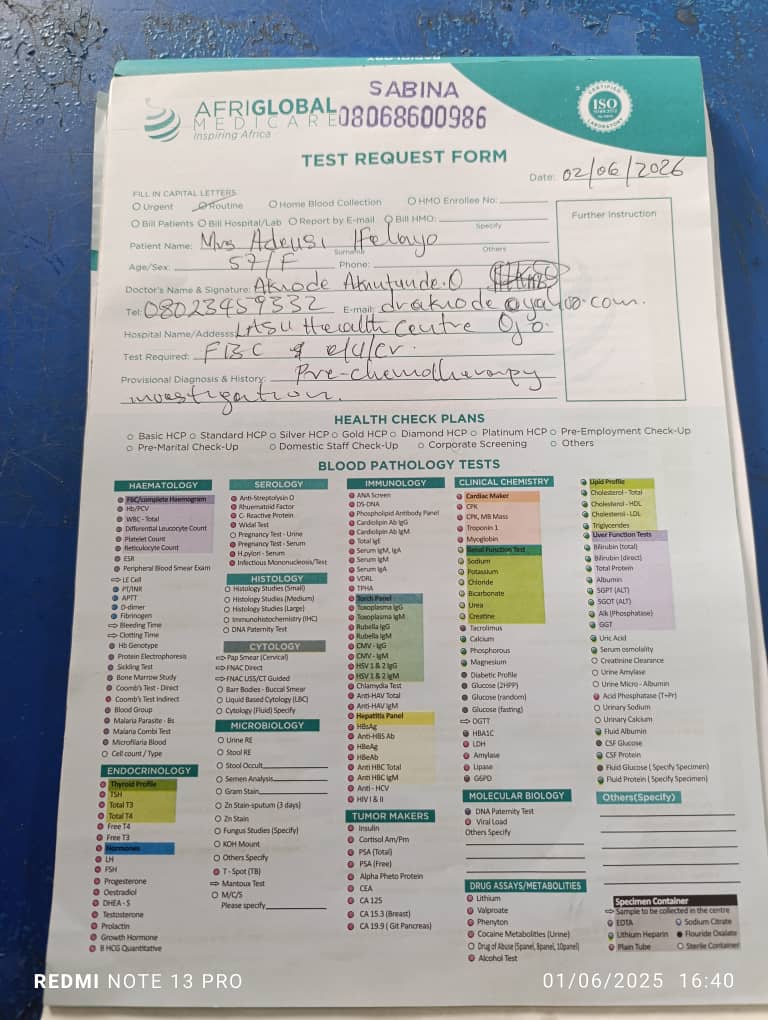 SABINA
08068600986
AFRIGLOBAL
MEDICARE
Inspiring Africa
CERTIFIED
ISO
LABORATORY
TEST REQUEST FORM
Date: 02/06/2026
FILL IN CAPITAL LETTERS
Urgent Routine Home Blood Collection HMO Enrollee No:
Bill Patients Bill Hospital/Lab Report by E-mail Bill HMO:
Specify
Further Instruction
Patient Name: Mrs Adeusi Ifelayo
Surname Others
Age/Sex: 57/F Phone:
Doctor's Name & Signature: Akinode Akintunde.O
Tel: 08023459332 E-mail: drakinode@yahoo.com.
Hospital Name/Addresss: LASU Health Centre Ojo.
Test Required: FBC & e/u/cr.
Provisional Diagnosis & History: Pre-chemotherapy
investigation.
HEALTH CHECK PLANS
Basic HCP Standard HCP Silver HCP Gold HCP Diamond HCP Platinum HCP Pre-Employment Check-Up
Pre-Marital Check-Up Domestic Staff Check-Up Corporate Screening Others
BLOOD PATHOLOGY TESTS
HAEMATOLOGY
FBC/complete Haemogram
Hb/PCV
WBC - Total
Differential Leucocyte Count
Platelet Count
Reticulocyte Count
ESR
Peripheral Blood Smear Exam
LE Cell
PT/INR
APTT
D-dimer
Fibrinogen
Bleeding Time
Clotting Time
Hb Genotype
Protein Electrophoresis
Sickling Test
Bone Marrow Study
Coomb's Test - Direct
Coomb's Test Indirect
Blood Group
Malaria Parasite - Bs
Malaria Combi Test
Microfilaria Blood
Cell count / Type
ENDOCRINOLOGY
Thyroid Profile
TSH
Total T3
Total T4
Free T4
Free T3
Hormones
LH
FSH
Progesterone
Oestradiol
DHEA - S
Testosterone
Prolactin
Growth Hormone
B HCG Quantitative
SEROLOGY
Anti-Streptolysin O
Rhuematoid Factor
C- Reactive Protein
Widal Test
Pregnancy Test - Urine
Pregnancy Test - Serum
H.pylori - Serum
Infectious Mononucleosis/Test
HISTOLOGY
Histology Studies (Small)
Histology Studies (Medium)
Histology Studies (Large)
Immunohistochemistry (IHC)
DNA Paternity Test
CYTOLOGY
Pap Smear (Cervical)
FNAC Direct
FNAC USS/CT Guided
Barr Bodies - Buccal Smear
Liquid Based Cytology (LBC)
Cytology (Fluid) Specify
MICROBIOLOGY
Urine RE
Stool RE
Stool Occult
Semen Analysis
Gram Stain
Zn Stain-sputum (3 days)
Zn Stain
Fungus Studies (Specify)
KOH Mount
Others Specify
T - Spot (TB)
Mantoux Test
M/C/S
Please specify
IMMUNOLOGY
ANA Screen
DS-DNA
Phospholipid Antibody Panel
Cardiolipin Ab IgG
Cardiolipin Ab IgM
Total IgE
Serum IgM, IgA
Serum IgM
Serum IgA
VDRL
TPHA
Torch Panel
Toxoplasma IgG
Toxoplasma IgM
Rubella IgG
Rubella IgM
CMV - IgG
CMV - IgM
HSV 1 & 2 IgG
HSV 1 & 2 IgM
Chlamydia Test
Anti-HAV Total
Anti-HAV IgM
Hepatitis Panel
HBsAg
Anti-HBS Ab
HBeAg
HBeAb
Anti HBC Total
Anti HBC IgM
Anti - HCV
HIV I & II
TUMOR MAKERS
Insulin
Cortisol Am/Pm
PSA (Total)
PSA (Free)
Alpha Pheto Protein
CEA
CA 125
CA 15.3 (Breast)
CA 19.9 ( Git Pancreas)
CLINICAL CHEMISTRY
Cardiac Maker
CPK
CPK, MB Mass
Troponin 1
Myoglobin
Renal Function Test
Sodium
Potassium
Chloride
Bicarbonate
Urea
Creatine
Tacrolimus
Calcium
Phosphorous
Magnesium
Diabetic Profile
Glucose (2HPP)
Glucose (random)
Glucose (fasting)
OGTT
HBA1C
LDH
Amylase
Lipase
G6PD
MOLECULAR BIOLOGY
DNA Paternity Test
Viral Load
Others Specify
DRUG ASSAYS/METABOLITIES
Lithium
Valproate
Phenyton
Cocaine Metabolities (Urine)
Drug of Abuse (5panel, 8panel, 10panel)
Alcohol Test
Lipid Profile
Cholesterol - Total
Cholesterol - HDL
Cholesterol - LDL
Triglycerides
Liver Function Tests
Bilirubin (total)
Bilirubin (direct)
Total Protein
Albumin
SGPT (ALT)
SGOT (ALT)
Alk (Phosphatase)
GGT
Uric Acid
Serum osmolality
Creatinine Clearance
Urine Amylase
Urine Micro - Albumin
Acid Phosphatase (T+Pr)
Urinary Sodium
Urinary Calcium
Fluid Albumin
CSF Glucose
CSF Protein
Fluid Glucose ( Specify Specimen)
Fluid Protein ( Specify Specimen)
Others(Specify)
Specimen Container
Sample to be collected in the centre
EDTA Sodium Citrate
Lithium Heparin Flouride Oxalate
Plain Tube Sterile Container
REDMI NOTE 13 PRO
01/06/2025 16:40